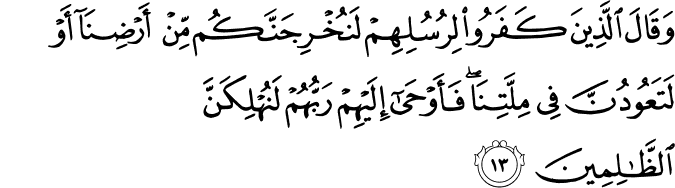 وَقَالَ ٱلَّذِينَ كَفَرُوا۟ لِرُسُلِهِمْ لَنُخْرِجَنَّكُم مِّنْ أَرْضِنَآ أَوْ
لَتَعُودُنَّ فِى مِلَّتِنَا ۖ فَأَوْحَىٰٓ إِلَيْهِمْ رَبُّهُمْ لَنُهْلِكَنَّ
ٱلظَّـٰلِمِينَ ١٣